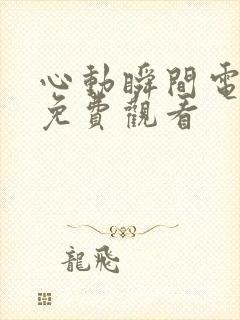 心動瞬間電
免費觀看
龍飛